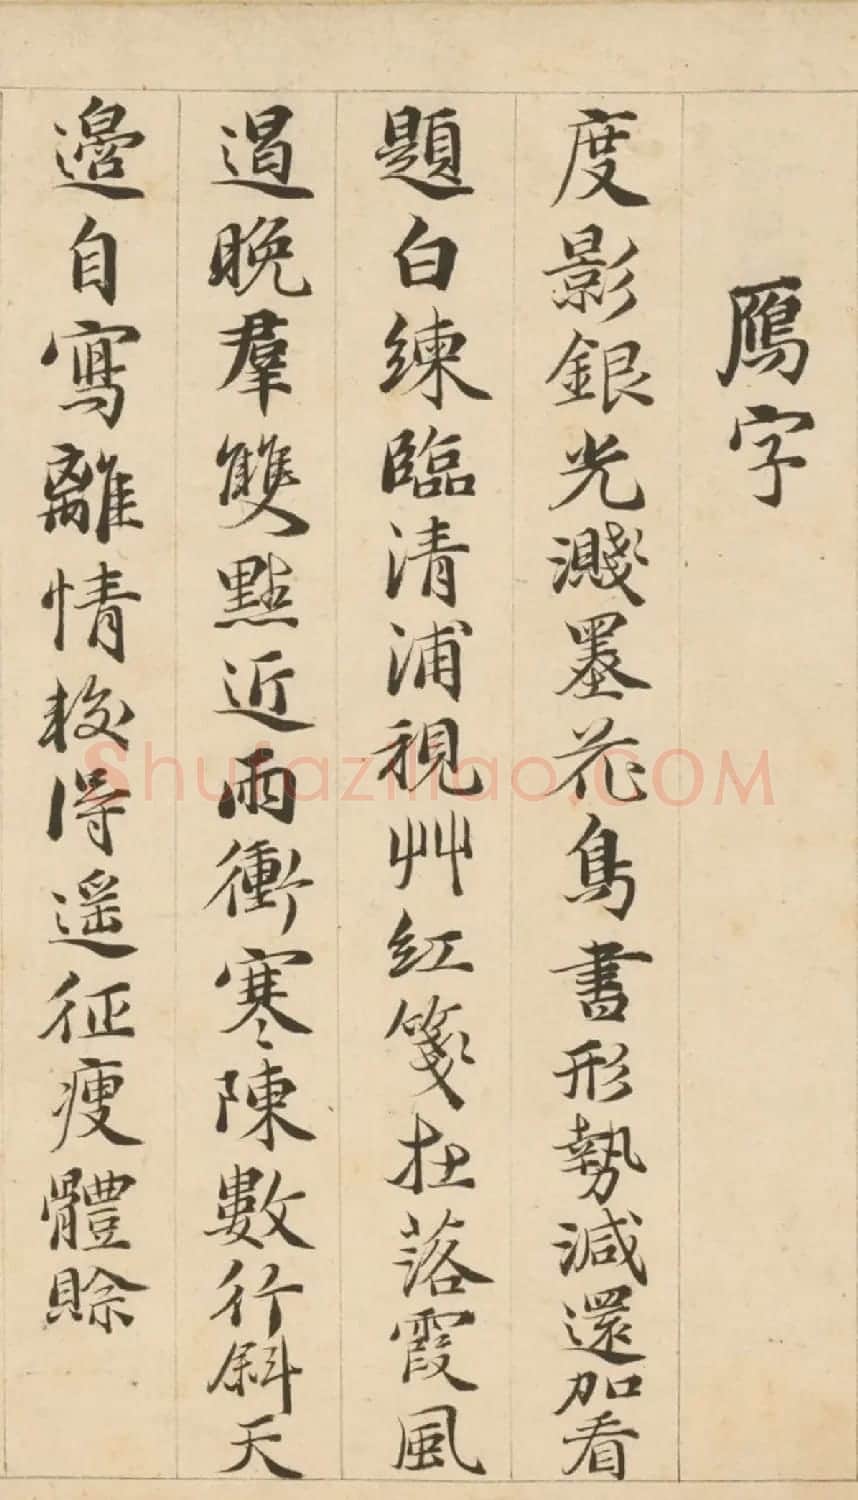 鴈字
度影銀光濺墨花鳥書形勢減還加看
題白練臨清浦視艸紅箋在落霞風
過晚羣雙點近雨衝寒陳數行斜天
邊自寫離情教得遥征瘦體賒
Shufaziliao.COM